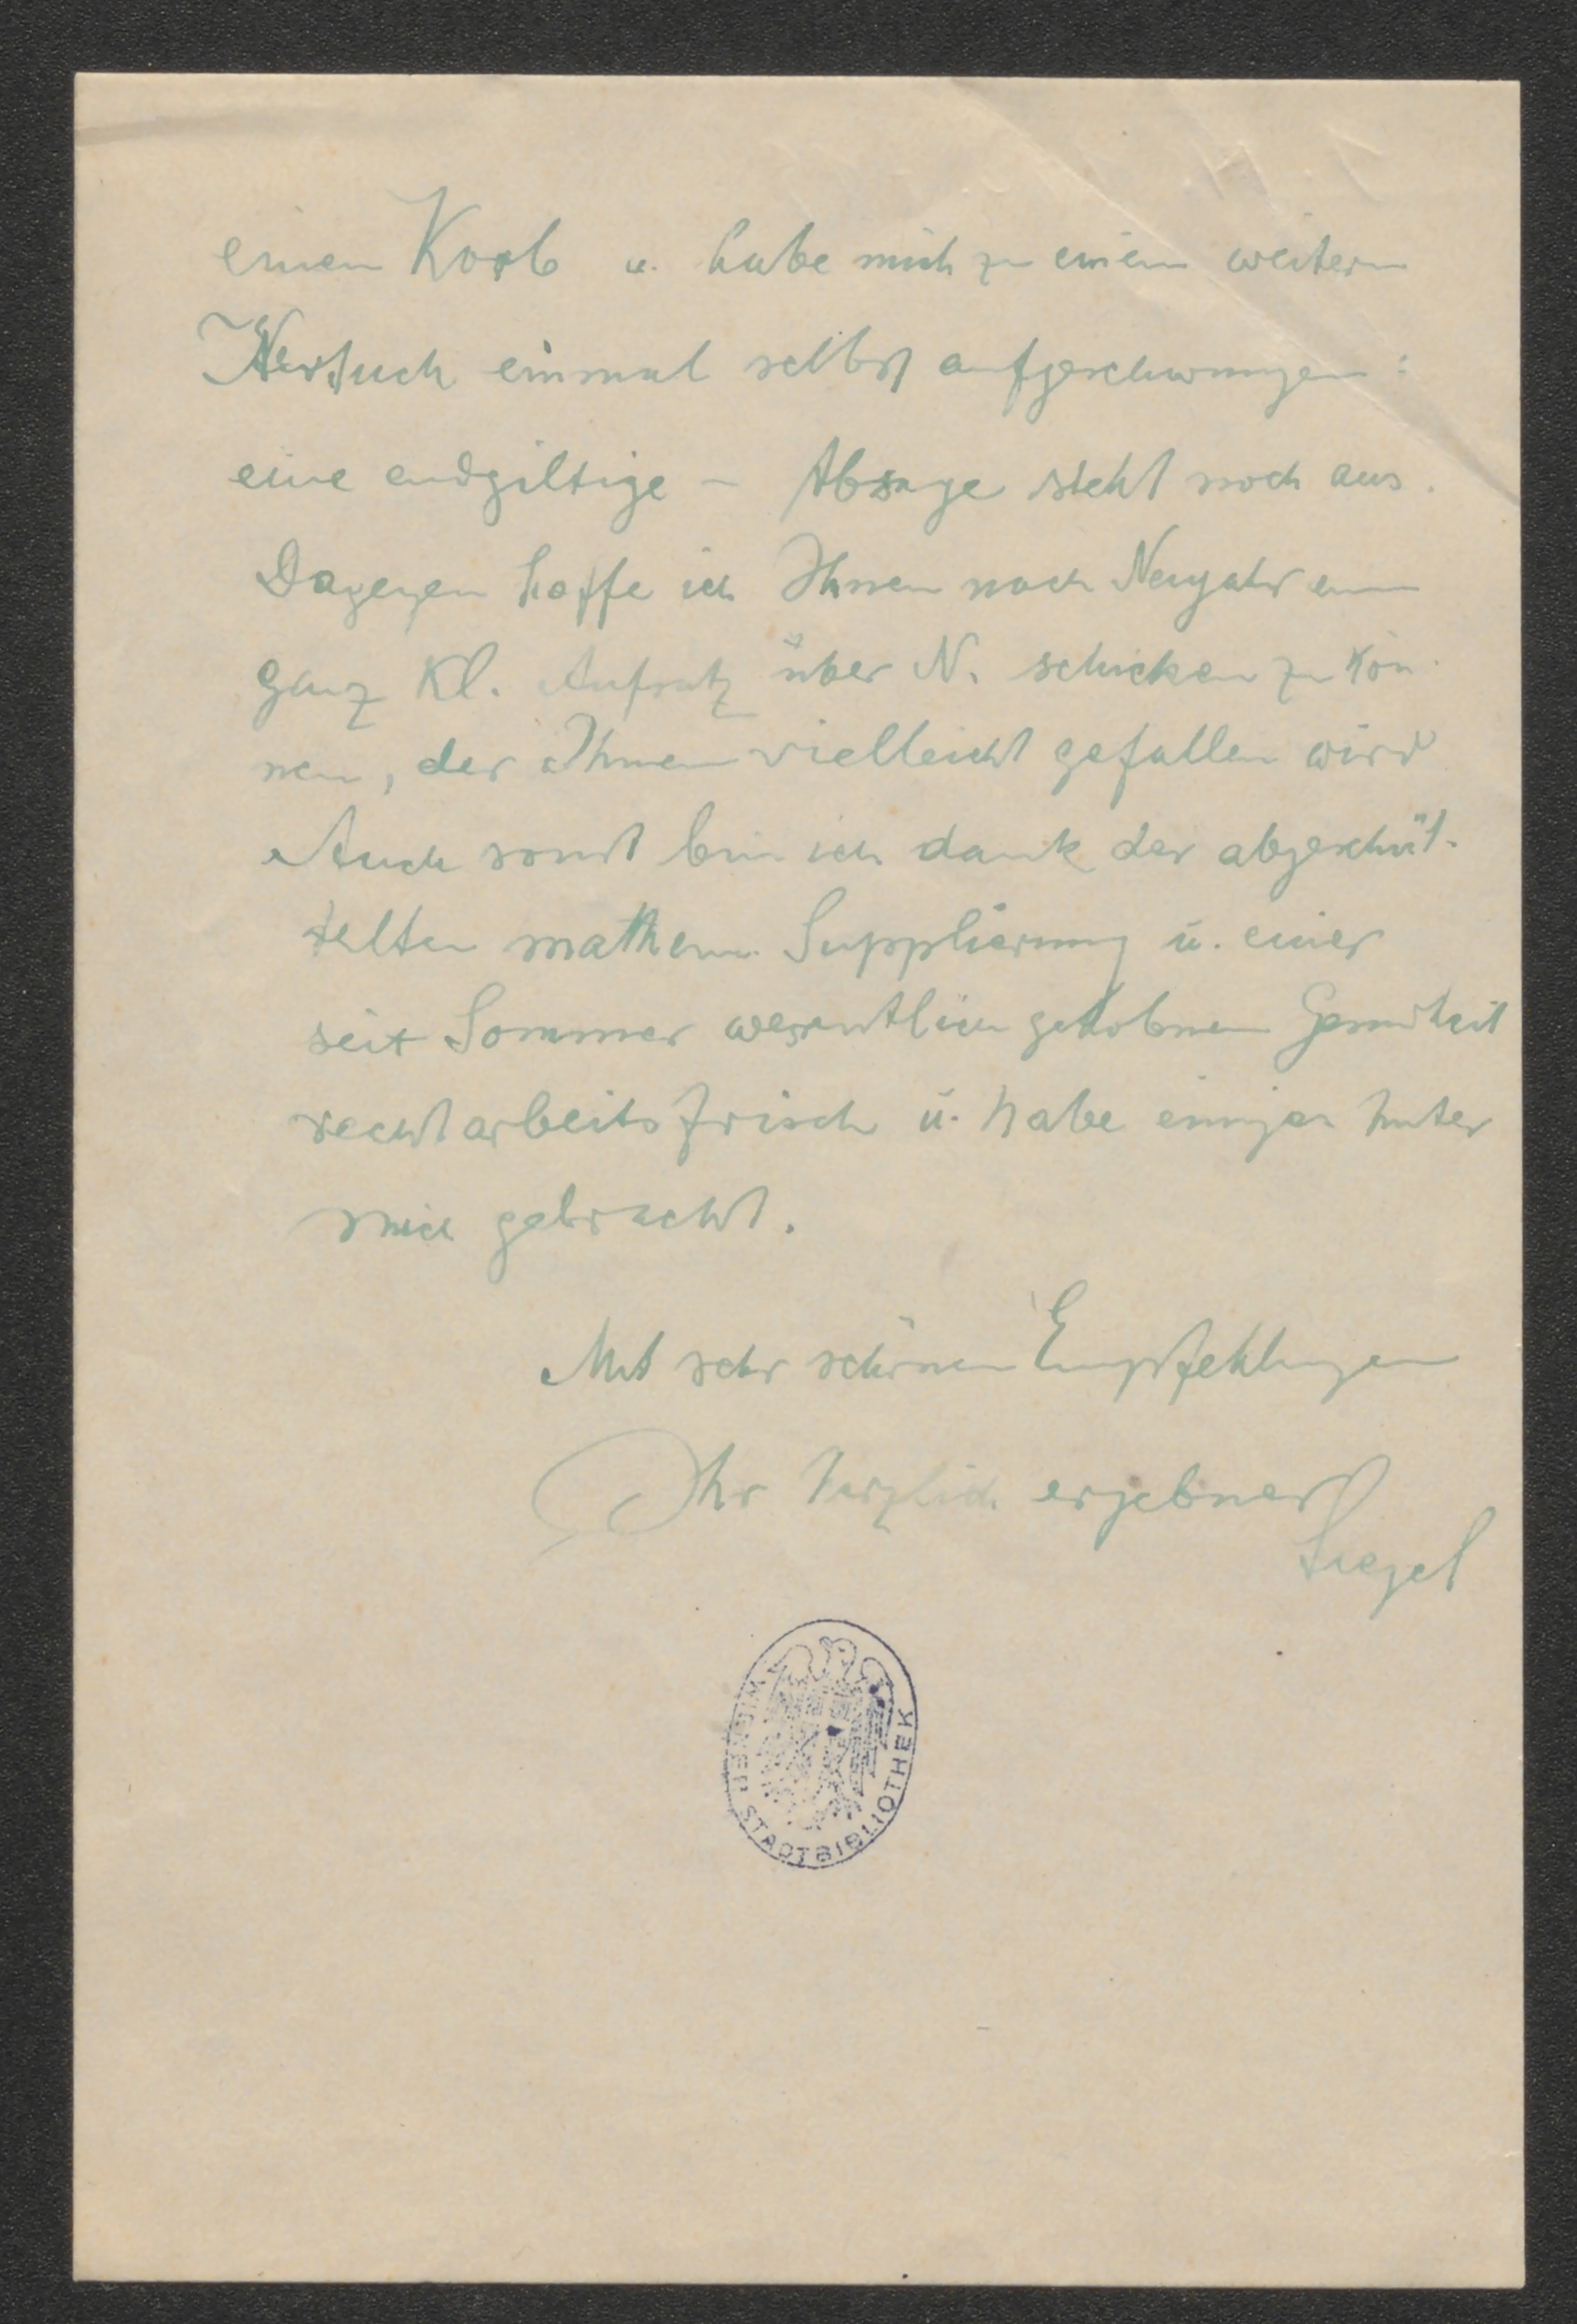 einen Korb u. habe mich zu einem weitern
Versuch einmal selbst aufgeschwungen :
eine endgiltige – Absage steht noch aus.
Dagegen hoffe ich Ihnen nach Neujahr einen
ganz kl. Aufsatz über N. schicken zu kön-
nen, der Ihnen vielleicht gefallen wird
Auch sonst bin ich dank der abgeschüt-
telten mathem. Supplierung u. einer
seit Sommer wesentlich gehobnen Gesundheit
recht arbeitsfrisch u. habe einiges hinter
mich gebracht.
Mit sehr schönen Empfehlungen
Ihr herzlich ergebner
Siegel
WIENER STADTBIBLIOTHEK